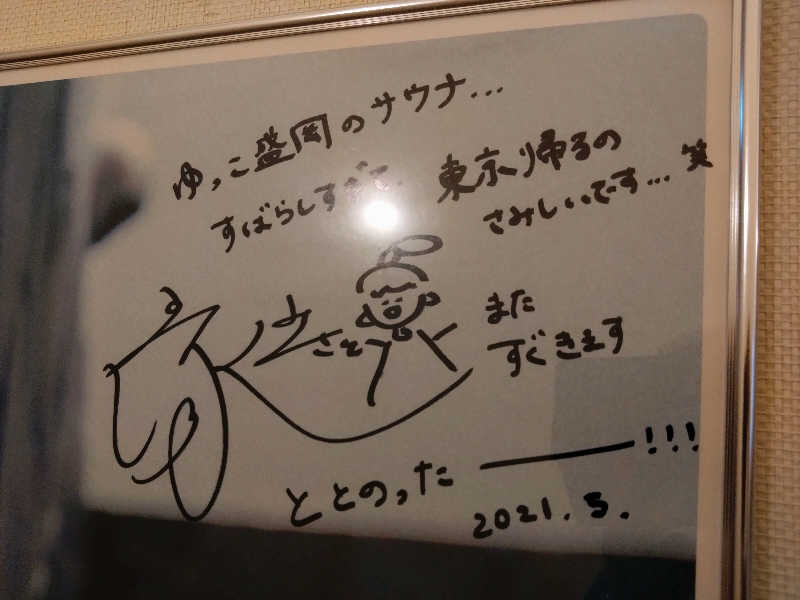 ゆっこ盛岡のサウナ...
すばらしすぎて、東京帰るの
さみしいです... 笑
また
すぐきます
ととのったー!!!
2021.5.